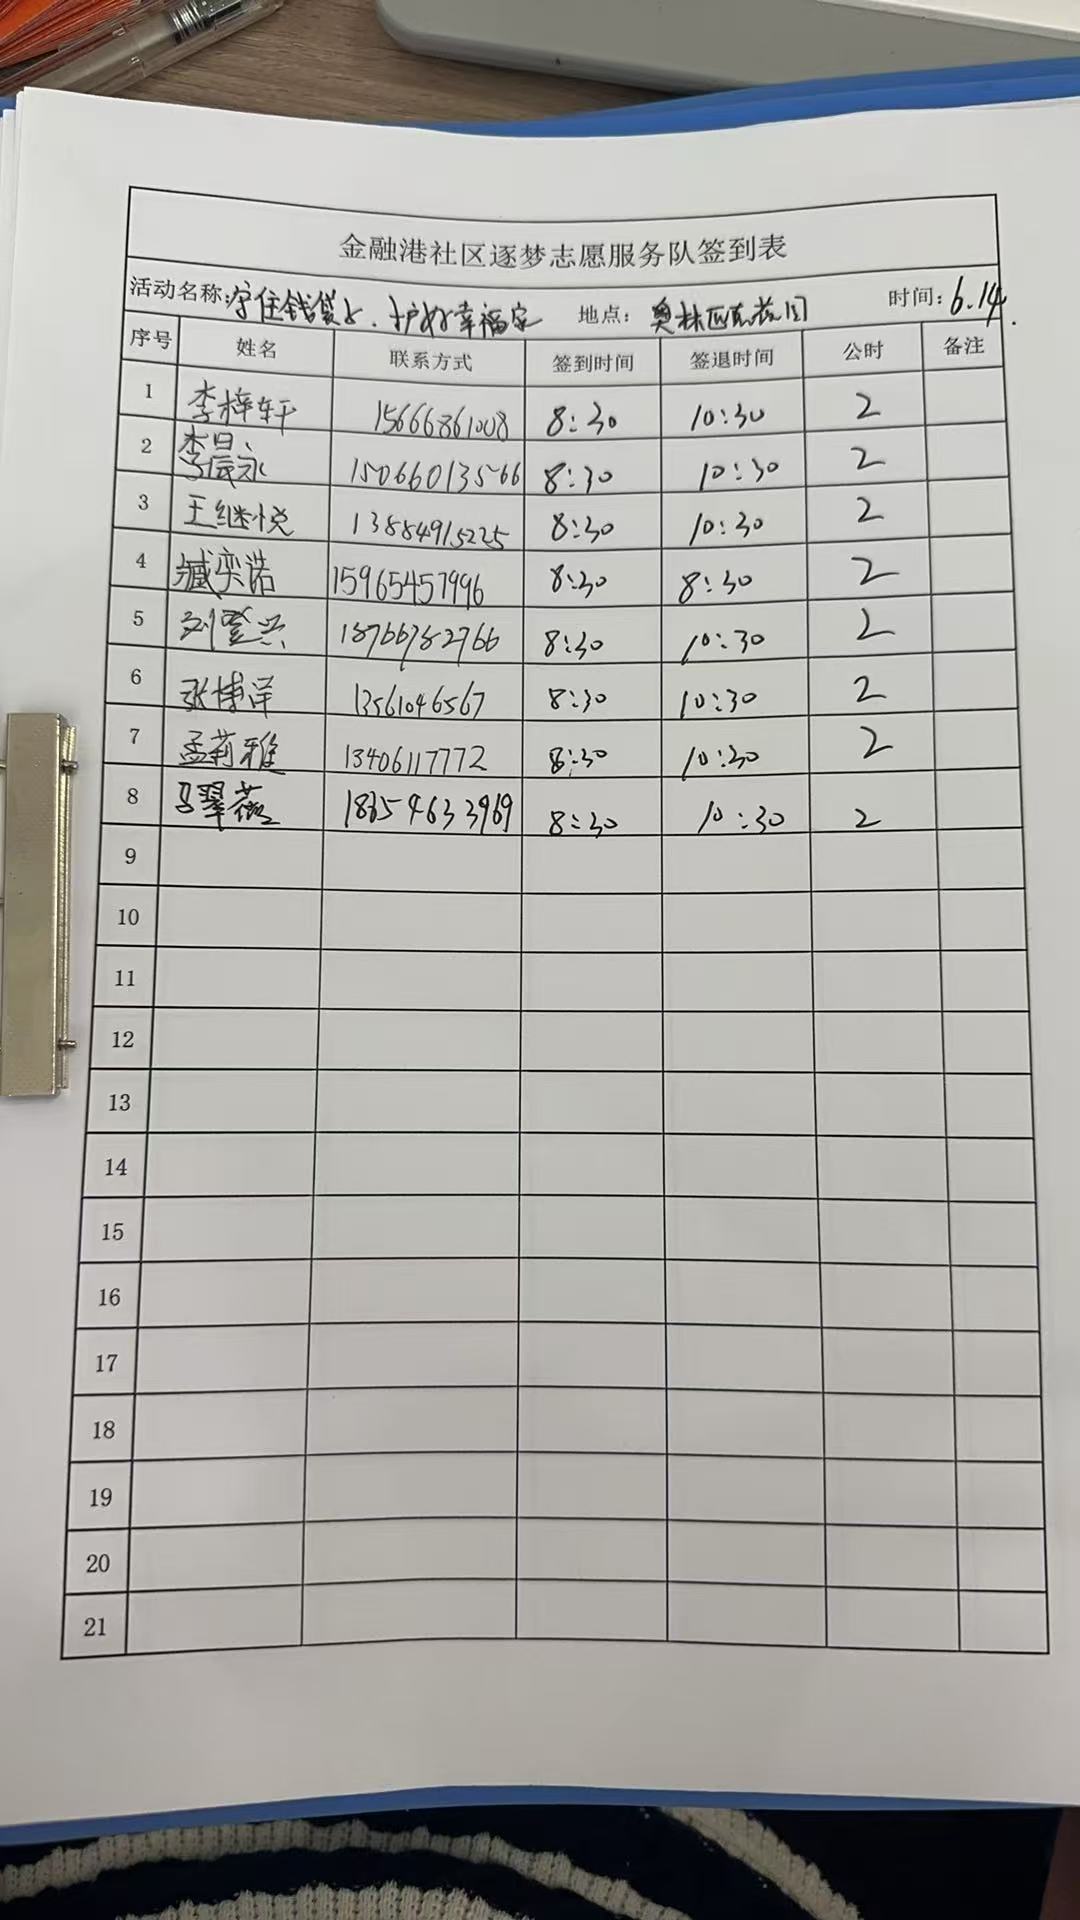 金融港社区逐梦志愿服务队签到表
活动名称:守住钱袋子、护好幸福家 地点: 奥林匹克花园 时间: 6.14.
序号 姓名 联系方式 签到时间 签退时间 公时 备注
1 李梓轩 15666861008 8:30 10:30 2
2 李晨永 15066013566 8:30 10:30 2
3 王继悦 13884915225 8:30 10:30 2
4 臧奕诺 15965457996 8:30 8:30 2
5 刘 兴 18766782766 8:30 10:30 2
6 张博洋 13561046567 8:30 10:30 2
7 孟莉雅 13406117772 8:30 10:30 2
8 马翠薇 18654633969 8:30 10:30 2
9
10
11
12
13
14
15
16
17
18
19
20
21